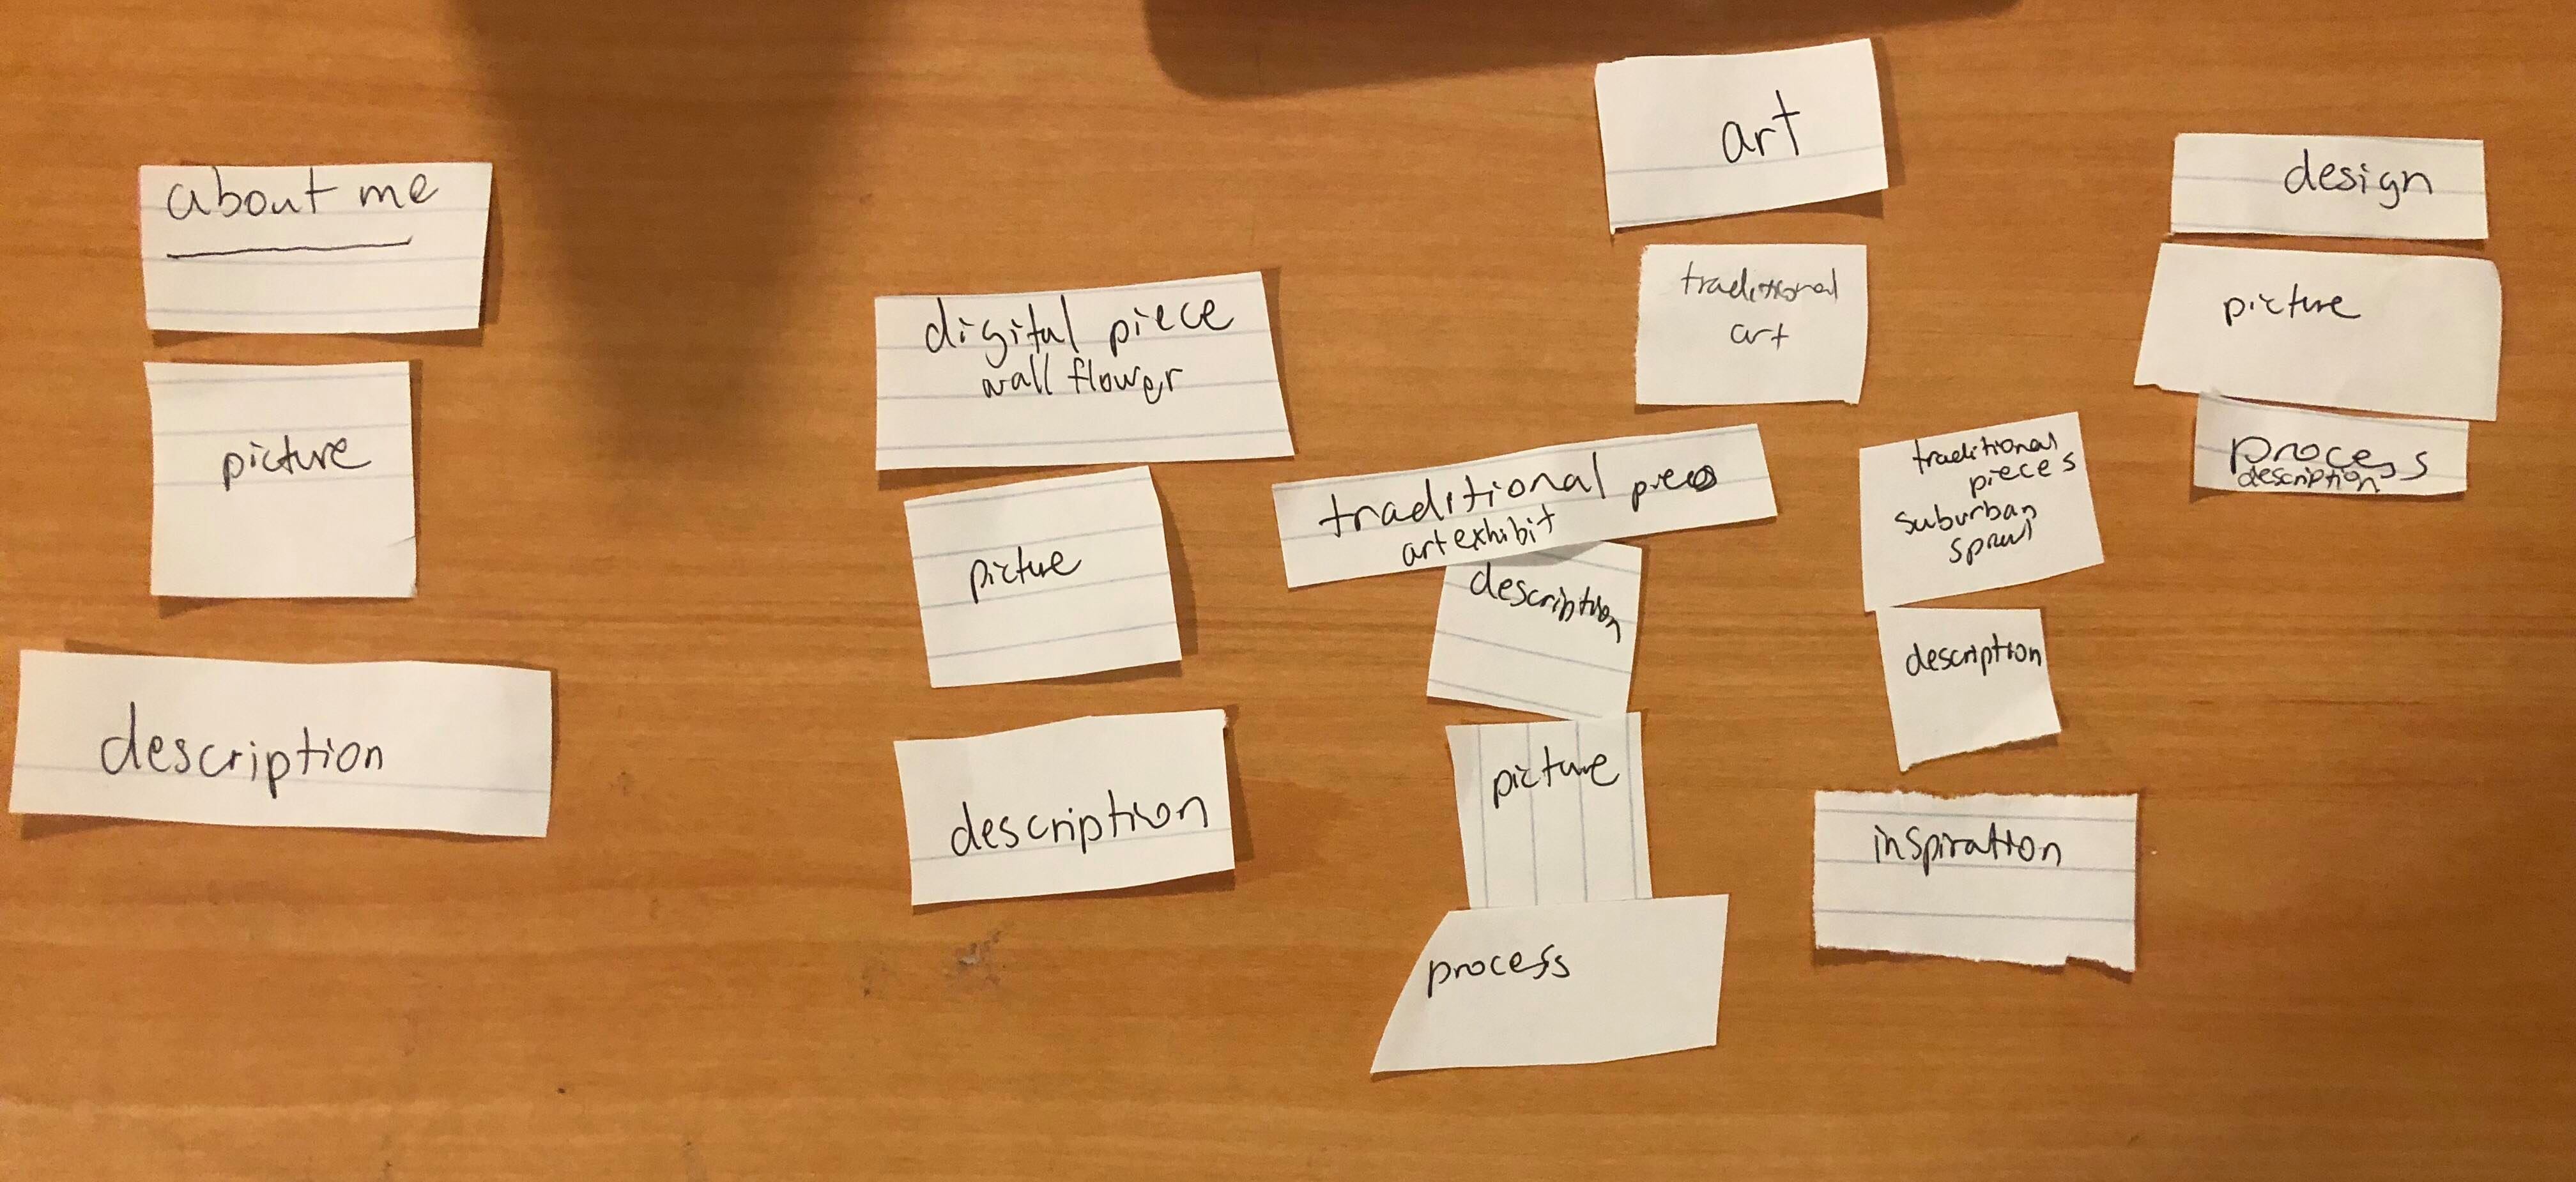 about me
picture
description
digital piece
wall flower
picture
description
art
traditional
art
traditional
art exhibit
description
picture
process
traditional
pieces
suburban
sprawl
description
inspiration
design
picture
process
description